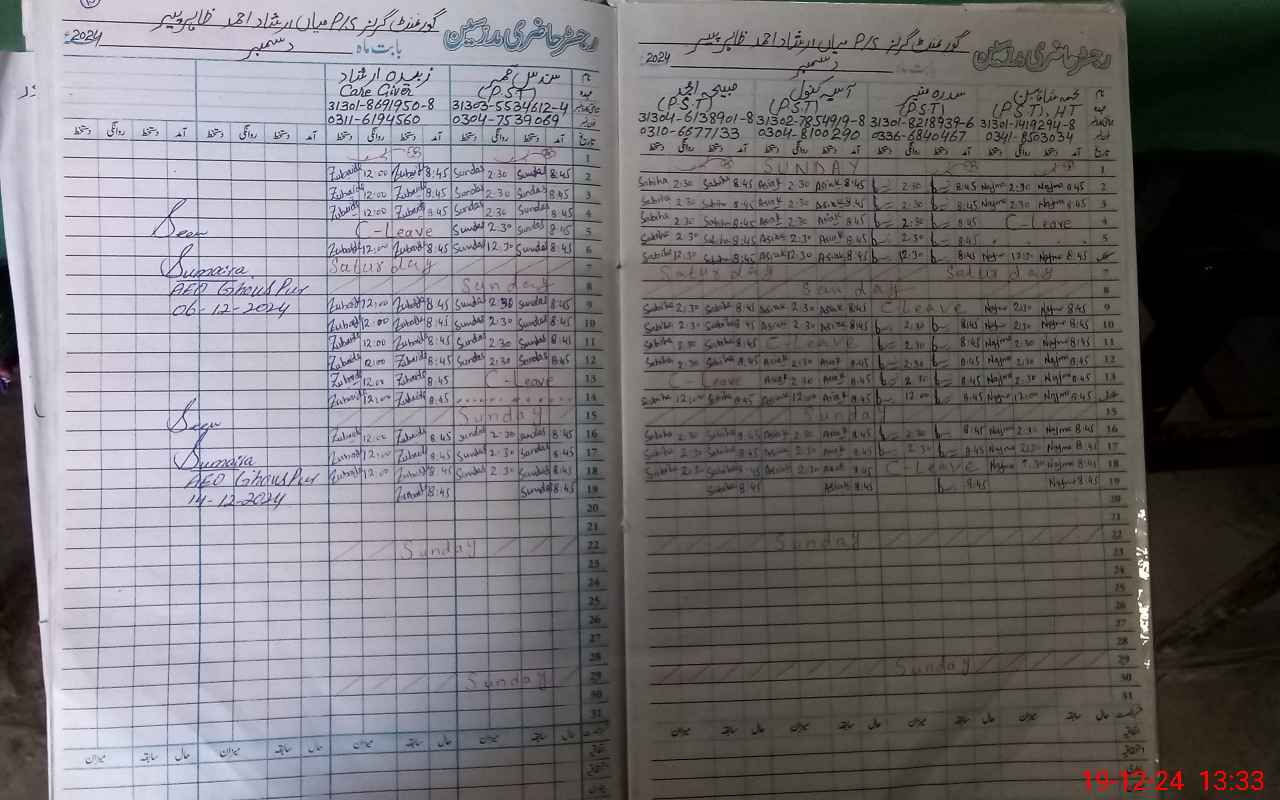 گورنمنٹ گرلز P/S میاں ارشاد احمد ظاہر پیر
رجسٹر حاضری مدرسین
بابت ماہ دسمبر 2024ء
زبیدہ ارشاد
سندس
Care Giver (P.S.T)
31301-8691950-8 31303-5534612-4
0311-6194560 0304-7539069
1
Zubaida 12:00 Zubaida 8:45 Sundas 2:30 Sundas 8:45 2
Zubaida 12:00 Zubaida 8:45 Sundas 2:30 Sundas 8:45 3
Zubaida 12:00 Zubaida 8:45 Sundas 2:30 Sundas 8:45 4
Seen C-Leave Sundas 2:30 Sundas 8:45 5
Zubaida 12:00 Zubaida 8:45 Sundas 12:30 Sundas 8:45 6
Sumaira Saturday 7
AEO Ghous Pur Sunday 8
06-12-2024 Zubaida 12:00 Zubaida 8:45 Sundas 2:30 Sundas 8:45 9
Zubaida 12:00 Zubaida 8:45 Sundas 2:30 Sundas 8:45 10
Zubaida 12:00 Zubaida 8:45 Sundas 2:30 Sundas 8:45 11
Zubaida 12:00 Zubaida 8:45 Sundas 2:30 Sundas 8:45 12
Zubaida 12:00 Zubaida 8:45 C-Leave 13
Zubaida 12:00 Zubaida 8:45 14
Seen Sunday 15
Zubaida 12:00 Zubaida 8:45 Sundas 2:30 Sundas 8:45 16
Sumaira Zubaida 12:00 Zubaida 8:45 Sundas 2:30 Sundas 8:45 17
AEO Ghous Pur Zubaida 12:00 Zubaida 8:45 Sundas 2:30 Sundas 8:45 18
14-12-2024 Zubaida 8:45 Sundas 8:45 19
20
21
Sunday 22
23
24
25
26
27
28
Sunday 29
30
31
میزان سابقہ حال میزان سابقہ حال میزان سابقہ حال میزان سابقہ حال
گورنمنٹ گرلز P/S میاں ارشاد احمد ظاہر پیر
رجسٹر حاضری مدرسین
بابت ماہ دسمبر 2024
صبیحہ امجد
آسیہ کنول
سدرہ منیر
نجمہ شاہین
(P.S.T) (P.S.T) (P.S.T) (P.S.T), HT
31304-6138901-8 31302-7854919-8 31301-8218939-6 31301-1419294-8
0310-6677133 0304-8100290 0336-6840467 0341-8503034
SUNDAY 1
Sabiha 2:30 Sabiha 8:45 Asiak 2:30 Asiak 8:45 2:30 8:45 Najma 2:30 Najma 8:45 2
Sabiha 2:30 Sabiha 8:45 Asiak 2:30 Asiak 8:45 2:30 8:45 Najma 2:30 Najma 8:45 3
Sabiha 2:30 Sabiha 8:45 Asiak 2:30 Asiak 8:45 2:30 8:45 C-Leave 4
Sabiha 2:30 Sabiha 8:45 Asiak 2:30 Asiak 8:45 2:30 8:45 5
Sabiha 12:30 Sabiha 8:45 Asiak 12:30 Asiak 8:45 12:30 8:45 Najma 12:30 Najma 8:45
Saturday Saturday 7
Sunday 8
Sabiha 2:30 Sabiha 8:45 Asiak 2:30 Asiak 8:45 C Leave Najma 2:30 Najma 8:45 9
Sabiha 2:30 Sabiha 8:45 Asiak 2:30 Asiak 8:45 2:30 8:45 Najma 2:30 Najma 8:45 10
Sabiha 2:30 Sabiha 8:45 C-Leave 2:30 8:45 Najma 2:30 Najma 8:45 11
Sabiha 2:30 Sabiha 8:45 Asiak 2:30 Asiak 8:45 2:30 8:45 Najma 2:30 Najma 8:45 12
C-Leave Asiak 2:30 Asiak 8:45 2:30 8:45 Najma 2:30 Najma 8:45 13
Sabiha 12:00 Sabiha 8:45 Asiak 12:00 Asiak 8:45 12:00 8:45 Najma 12:00 Najma 8:45
Sunday 15
Sabiha 2:30 Sabiha 8:45 Asiak 2:30 Asiak 8:45 2:30 8:45 Najma 2:30 Najma 8:45 16
Sabiha 2:30 Sabiha 8:45 Asiak 2:30 Asiak 8:45 2:30 8:45 Najma 2:30 Najma 8:45 17
Sabiha 2:30 Sabiha 8:45 Asiak 2:30 Asiak 8:45 C Leave Najma 2:30 Najma 8:45 18
Sabiha 8:45 Asiak 8:45 8:45 Najma 8:45 19
20
21
Sunday 22
23
24
25
26
27
28
Sunday 29
30
31
میزان سابقہ حال میزان سابقہ حال میزان سابقہ حال میزان سابقہ حال
19-12-24 13:33